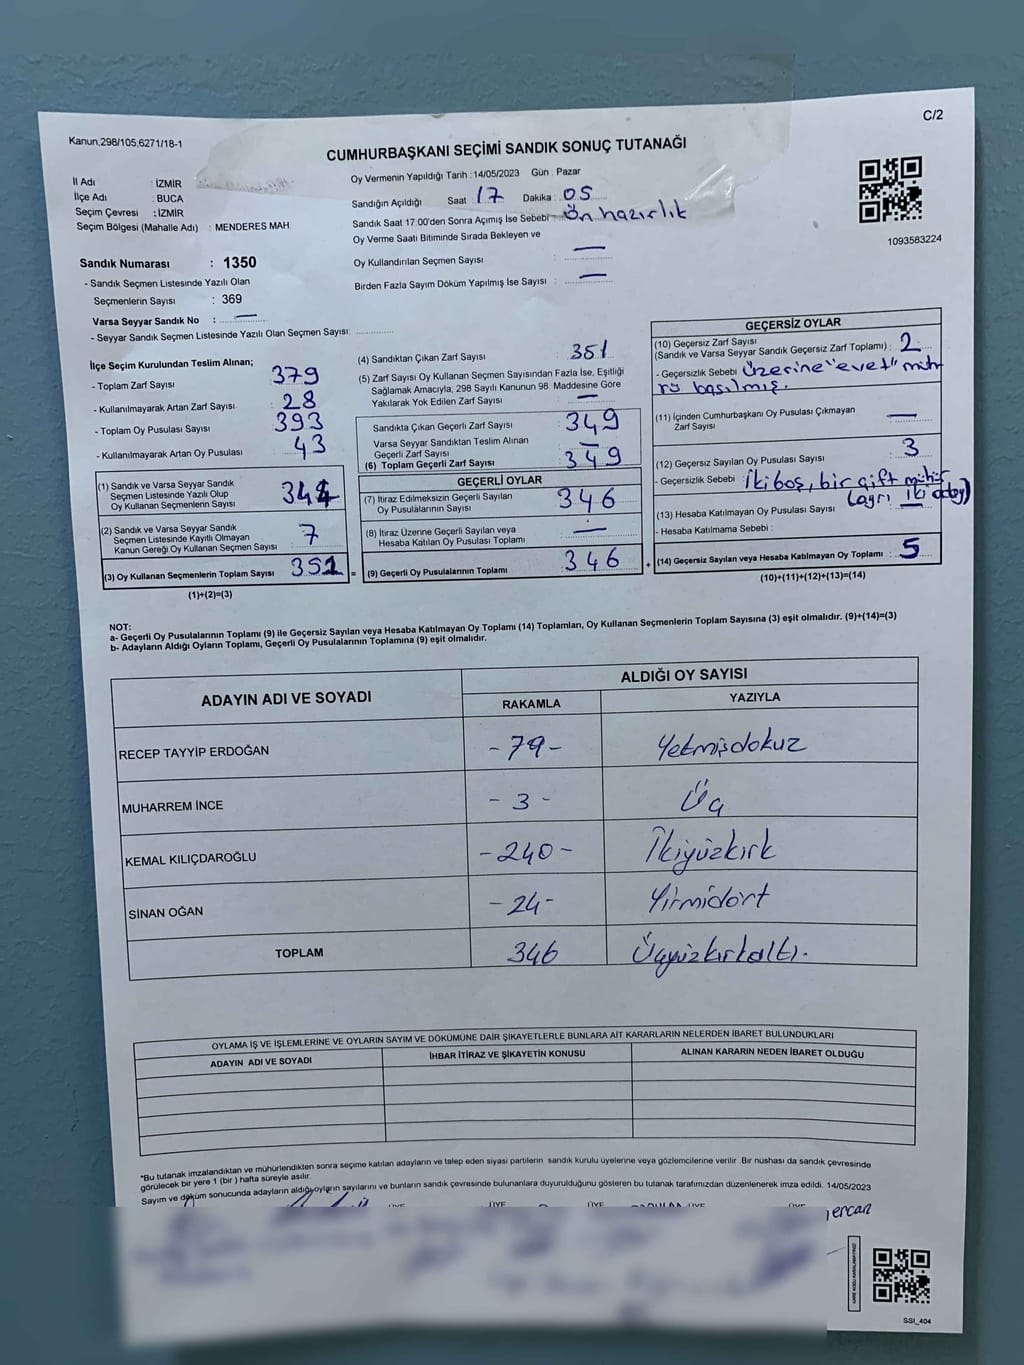 C/2
Kanun,298/105,6271/18-1
CUMHURBAŞKANI SEÇİMİ SANDIK SONUÇ TUTANAĞI
İl Adı : İZMİR
İlçe Adı : BUCA
Seçim Çevresi : İZMİR
Seçim Bölgesi (Mahalle Adı) : MENDERES MAH.
Oy Vermenin Yapıldığı Tarih : 14/05/2023 Gün : Pazar
Sandığın Açıldığı Saat : 17 Dakika : 05
Sandık Saat 17:00'den Sonra Açılmış İse Sebebi Ön hazırlık
Oy Verme Saati Bitiminde Sırada Bekleyen ve
Oy Kullandırılan Seçmen Sayısı : —
Birden Fazla Sayım Döküm Yapılmış İse Sayısı : —
1093583224
Sandık Numarası : 1350
- Sandık Seçmen Listesinde Yazılı Olan
Seçmenlerin Sayısı : 369
Varsa Seyyar Sandık No : —
- Seyyar Sandık Seçmen Listesinde Yazılı Olan Seçmen Sayısı:
İlçe Seçim Kurulundan Teslim Alınan;
- Toplam Zarf Sayısı 379
- Kullanılmayarak Artan Zarf Sayısı 28
- Toplam Oy Pusulası Sayısı 393
- Kullanılmayarak Artan Oy Pusulası 43
(1) Sandık ve Varsa Seyyar Sandık
Seçmen Listesinde Yazılı Olup
Oy Kullanan Seçmenlerin Sayısı 344
(2) Sandık ve Varsa Seyyar Sandık
Seçmen Listesinde Kayıtlı Olmayan
Kanun Gereği Oy Kullanan Seçmen Sayısı 7
(3) Oy Kullanan Seçmenlerin Toplam Sayısı 351
(1)+(2)=(3)
(4) Sandıktan Çıkan Zarf Sayısı : 351
(5) Zarf Sayısı Oy Kullanan Seçmen Sayısından Fazla İse, Eşitliği
Sağlamak Amacıyla, 298 Sayılı Kanunun 98. Maddesine Göre
Yakılarak Yok Edilen Zarf Sayısı : —
Sandıkta Çıkan Geçerli Zarf Sayısı : 349
Varsa Seyyar Sandıktan Teslim Alınan
Geçerli Zarf Sayısı : —
(6) Toplam Geçerli Zarf Sayısı : 349
GEÇERLİ OYLAR
(7) İtiraz Edilmeksizin Geçerli Sayılan
Oy Pusulalarının Sayısı : 346
(8) İtiraz Üzerine Geçerli Sayılan veya
Hesaba Katılan Oy Pusulası Toplamı : —
= (9) Geçerli Oy Pusulalarının Toplamı : 346
GEÇERSİZ OYLAR
(10) Geçersiz Zarf Sayısı
(Sandık ve Varsa Seyyar Sandık Geçersiz Zarf Toplamı) : 2
- Geçersizlik Sebebi Üzerine "evet" müh
rü basılmış.
(11) İçinden Cumhurbaşkanı Oy Pusulası Çıkmayan
Zarf Sayısı : —
(12) Geçersiz Sayılan Oy Pusulası Sayısı : 3
- Geçersizlik Sebebi : İki boş, bir çift mühür
(ayrı iki aday)
(13) Hesaba Katılmayan Oy Pusulası Sayısı : —
- Hesaba Katılmama Sebebi :
+ (14) Geçersiz Sayılan veya Hesaba Katılmayan Oy Toplamı : 5
(10)+(11)+(12)+(13)=(14)
NOT:
a- Geçerli Oy Pusulalarının Toplamı (9) ile Geçersiz Sayılan veya Hesaba Katılmayan Oy Toplamı (14) Toplamları, Oy Kullanan Seçmenlerin Toplam Sayısına (3) eşit olmalıdır. (9)+(14)=(3)
b- Adayların Aldığı Oyların Toplamı, Geçerli Oy Pusulalarının Toplamına (9) eşit olmalıdır.
ADAYIN ADI VE SOYADI
ALDIĞI OY SAYISI
RAKAMLA YAZIYLA
RECEP TAYYİP ERDOĞAN -79- Yetmişdokuz
MUHARREM İNCE -3- Üç
KEMAL KILIÇDAROĞLU -240- İkiyüzkırk
SİNAN OĞAN -24- Yirmidört
TOPLAM 346 Üçyüzkırkaltı.
OYLAMA İŞ VE İŞLEMLERİNE VE OYLARIN SAYIM VE DÖKÜMÜNE DAİR ŞİKAYETLERLE BUNLARA AİT KARARLARIN NELERDEN İBARET BULUNDUKLARI
ADAYIN ADI VE SOYADI İHBAR İTİRAZ VE ŞİKAYETİN KONUSU ALINAN KARARIN NEDEN İBARET OLDUĞU
*Bu tutanak imzalandıktan ve mühürlendikten sonra seçime katılan adayların ve talep eden siyasi partilerin sandık kurulu üyelerine veya gözlemcilerine verilir. Bir nüshası da sandık çevresinde
görülecek bir yere 1 (bir) hafta süreyle asılır.
Sayım ve döküm sonucunda adayların aldığı oyların sayılarını ve bunların sandık çevresinde bulunanlara duyurulduğunu gösteren bu tutanak tarafımızdan düzenlenerek imza edildi. 14/05/2023
ÜYE ÜYE ÜYE ÜYE ÜYE
ercan
SSI_404